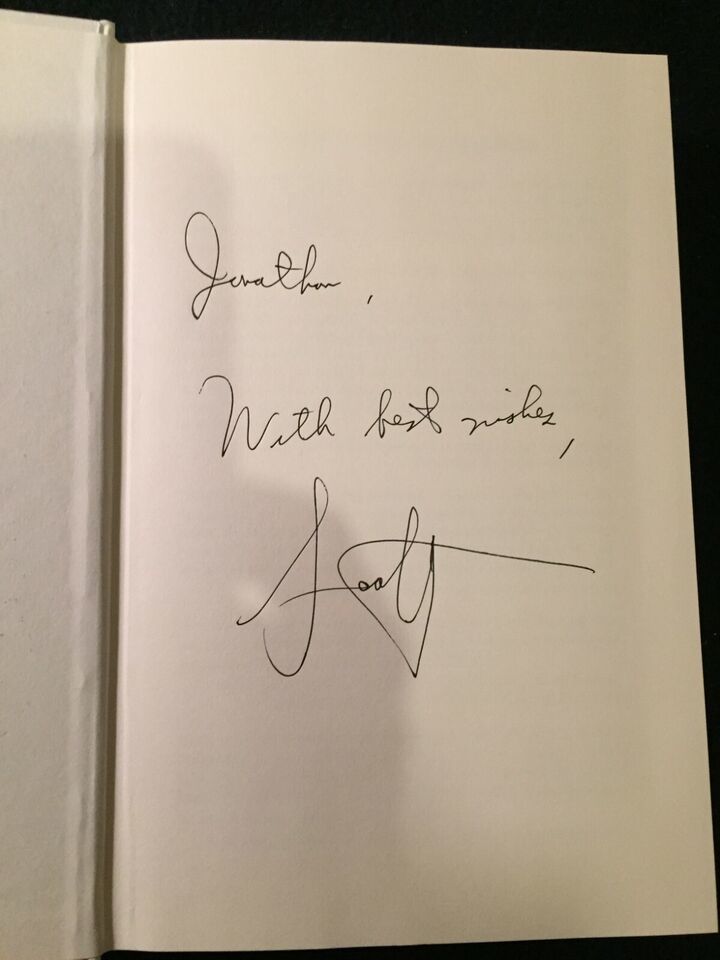 Jonathan,
With best wishes,